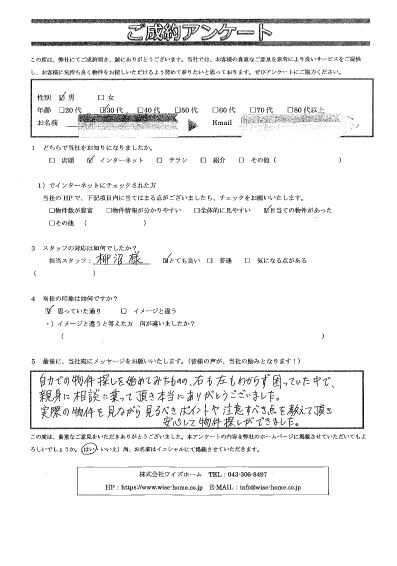 ご成約アンケート
この度は、弊社にてご成約頂き、誠にありがとうございます。当社では、お客様の貴重なご意見を参考により良いサービスをご提供
し、お客様に気持ち良く物件をお探しいただけるよう努めて参りたいと思っております。ぜひアンケートにご協力ください。
性別 ☑男 □女
年齢 □20代 ☑30代 □40代 □50代 □60代 □70代 □80代以上
お名前 Email
1 どちらで当社をお知りになりましたか。
□ 店頭 ☑ インターネット □ チラシ □ 紹介 □ その他 ( )
1)でインターネットにチェックされた方
当社のHPで、下記項目内に当てはまる点がございましたら、チェックをお願いいたします。
□物件数が豊富 □物件情報が分かりやすい □全体的に見やすい ☑目当ての物件があった
□その他 ( )
3 スタッフの対応は如何でしたか?
担当スタッフ:柳沼様 ☑とても良い □ 普通 □ 気になる点がある
( )
4 当社の印象は如何ですか?
☑ 思っていた通り □ イメージと違う
・)イメージと違うと答えた方 何が違いましたか?
( )
5 最後に、当社宛にメッセージをお願いいたします。(皆様の声が、当社の励みとなります!)
自力での物件探しを始めてみたものの、右も左もわからず困っていた中で、
親身に相談に乗って頂き本当にありがとうございました。
実際の物件を見ながら見るべきポイントや注意すべき点を教えて頂き
安心して物件探しができました。
この度は、貴重なご意見をいただきありがとうございました。本アンケートの内容を弊社のホームページに掲載させていただいてもよ
ろしいでしょうか。(はい・いいえ)尚、お名前はイニシャルにて掲載させていただきます。
株式会社ワイズホーム TEL:043-306-8497
HP:https://www.wise-home.co.jp E-MAIL:info@wise-home.co.jp